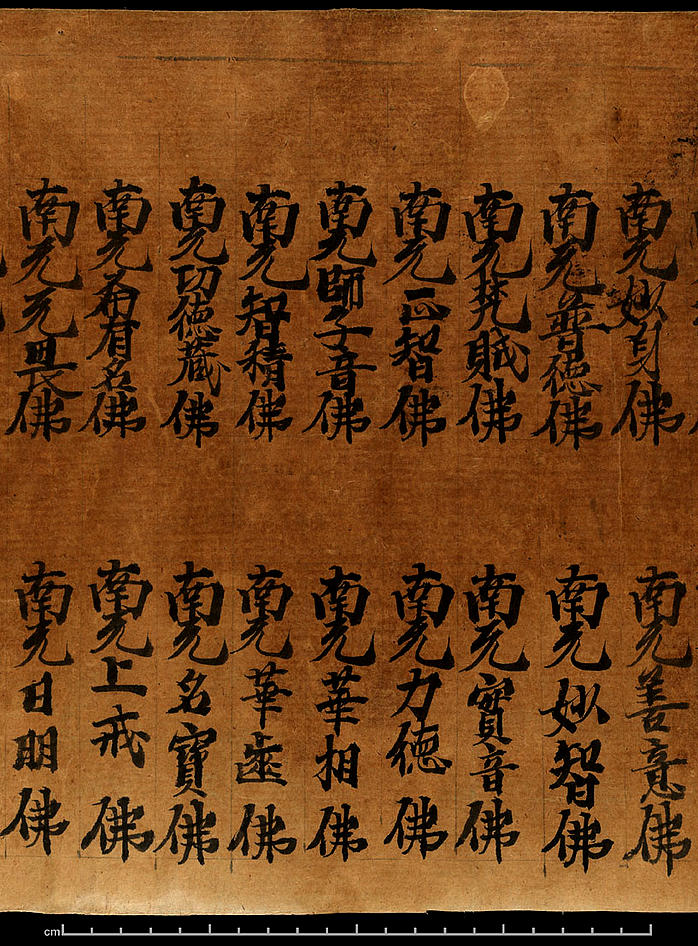 南无妙身佛
南无善意佛
南无普德佛
南无妙智佛
南无梵賊佛
南无實音佛
南无正智佛
南无力德佛
南无師子音佛
南无華相佛
南无智精佛
南无華齒佛
南无功德藏佛
南无名寶佛
南无希有名佛
南无上戒佛
南无无畏佛
南无日明佛
cm